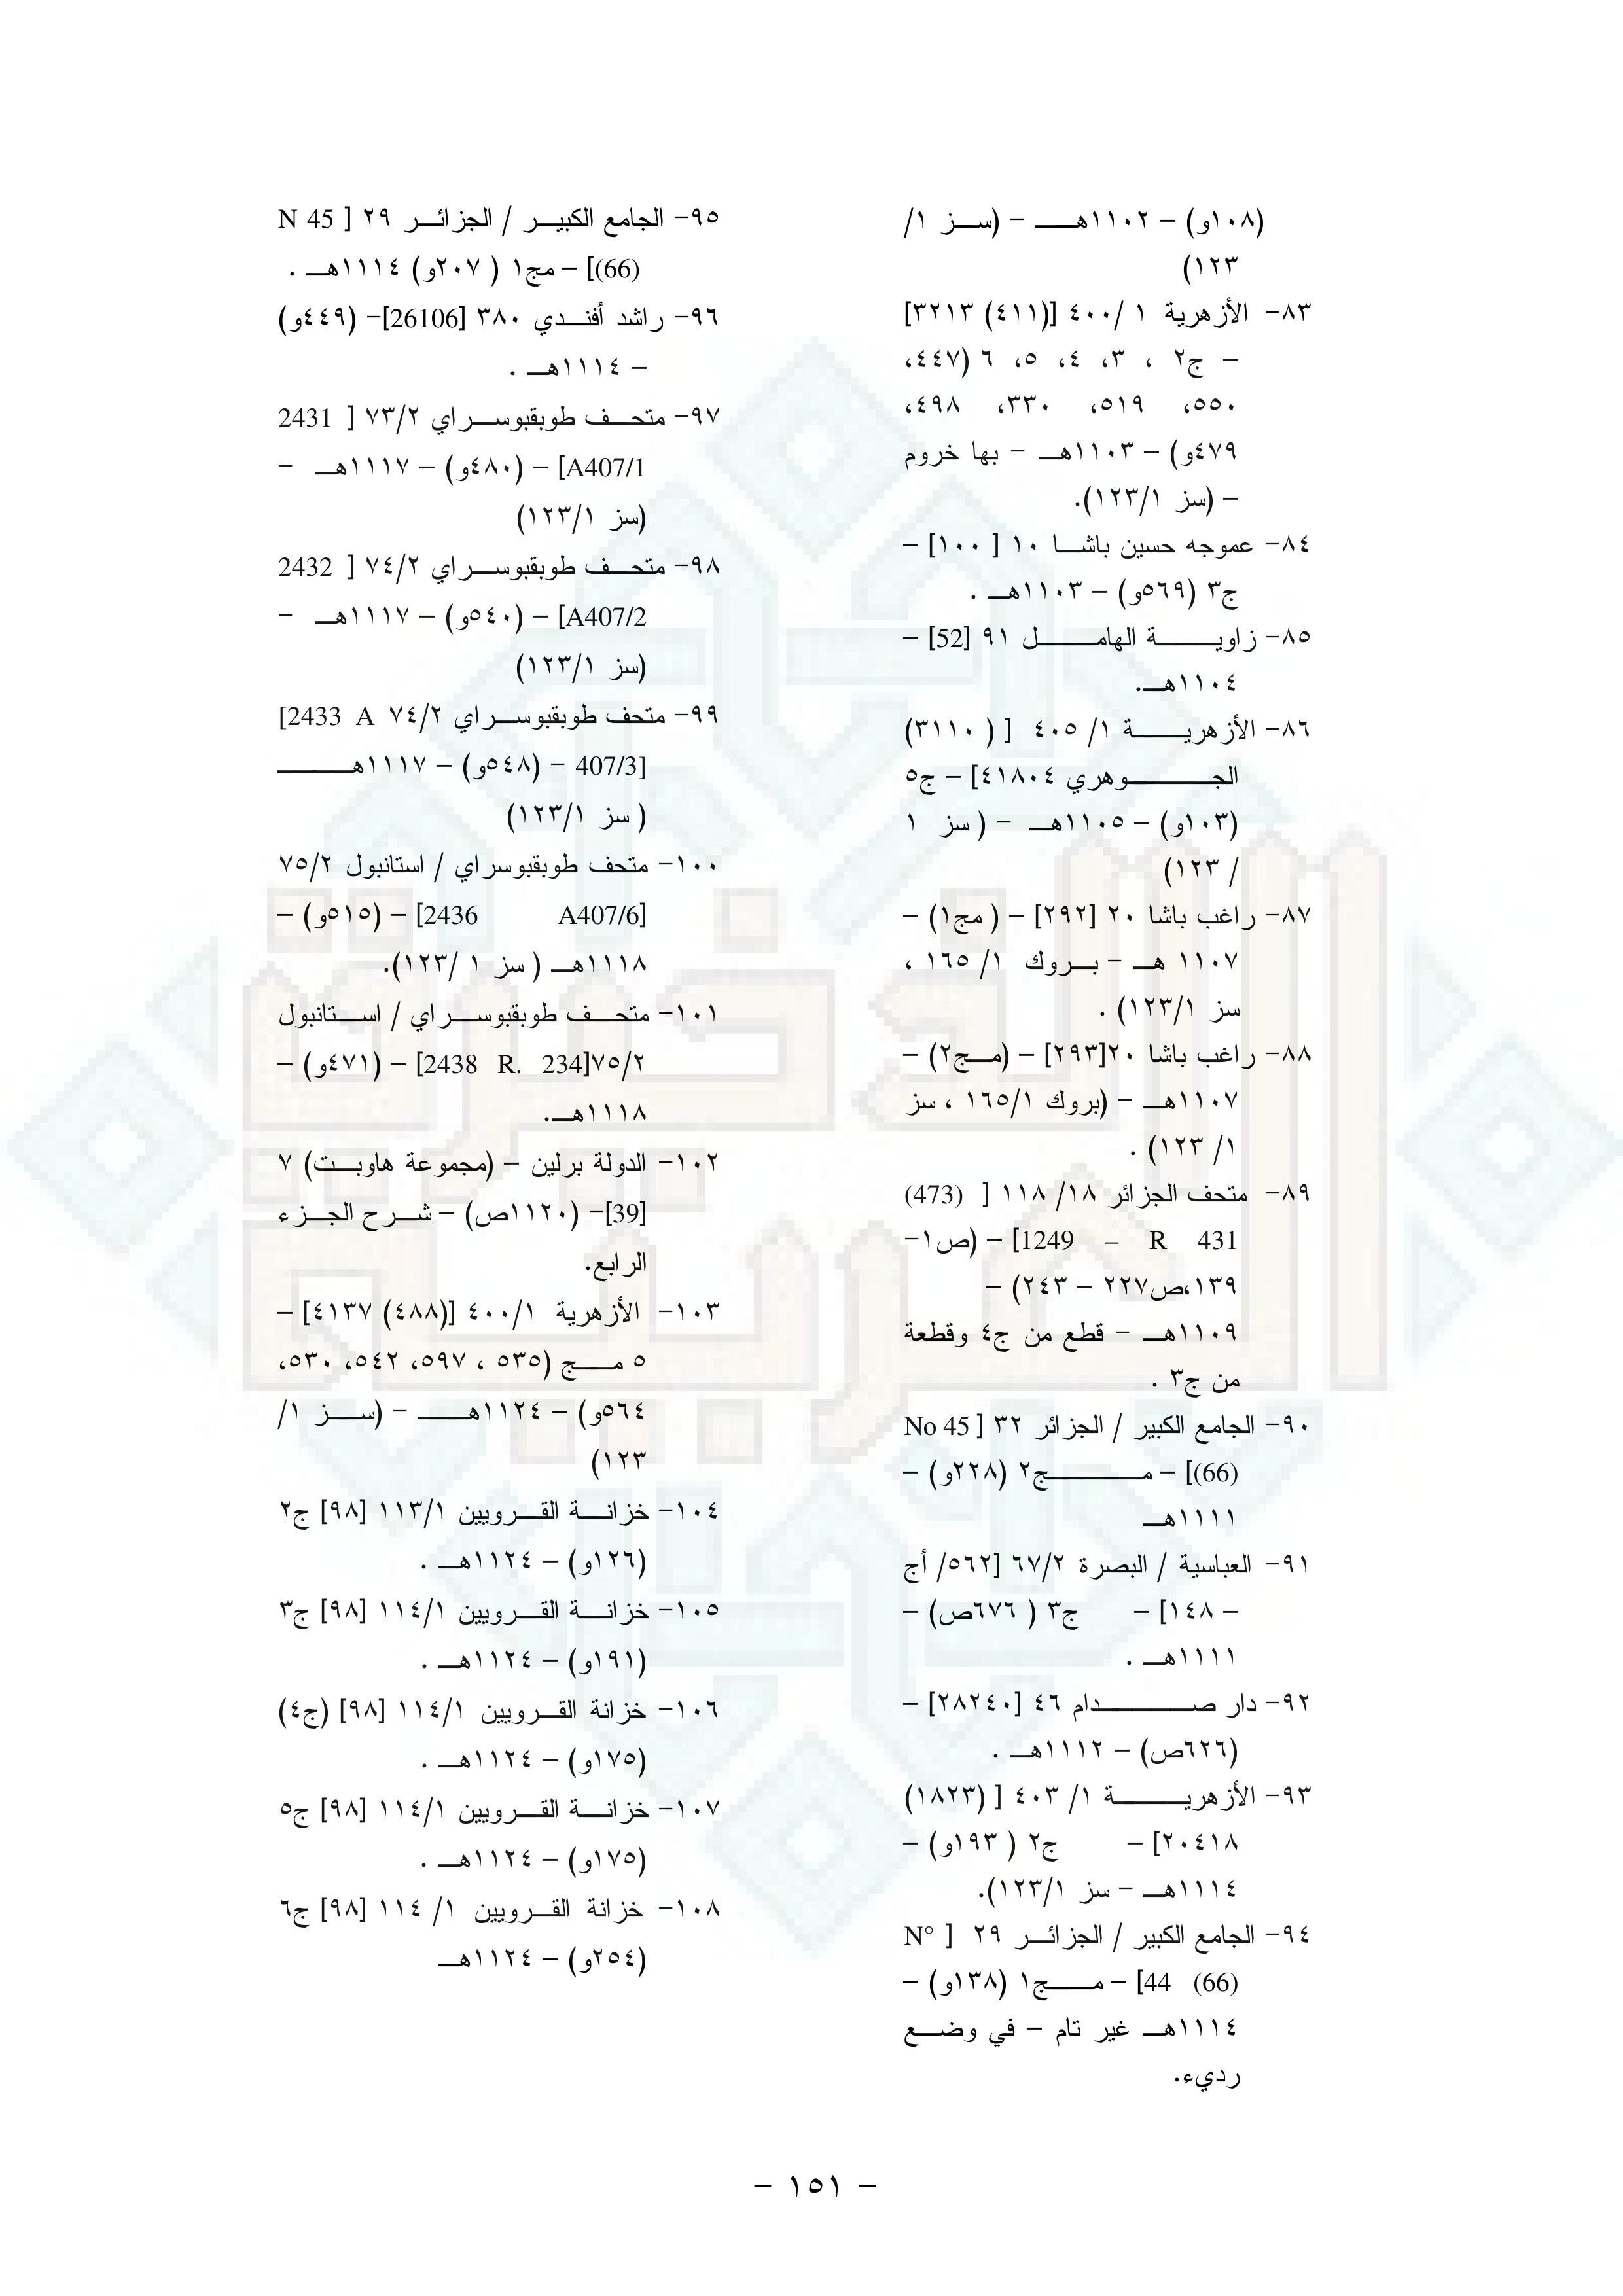 (١٠٨و) – ١١٠٢هـ – (سز ١/
١٢٣)
٨٣- الأزهرية ١ /٤٠٠ [(٤١١) ٣٢١٣]
– ج٢ ، ٣، ٤، ٥، ٦ (٤٤٧،
٥٥٠، ٥١٩، ٣٣٠، ٤٩٨،
٤٧٩و) – ١١٠٣هـ – بها خروم
– (سز ١/١٢٣).
٨٤- عموجه حسين باشا ١٠ [ ١٠٠] –
ج٣ (٥٦٩و) – ١١٠٣هـ .
٨٥- زاوية الهامل ٩١ [52] –
١١٠٤هـ.
٨٦- الأزهرية ١/ ٤٠٥ [ ( ٣١١٠)
الجوهري ٤١٨٠٤] – ج٥
(١٠٣و) – ١١٠٥هـ – ( سز ١
/ ١٢٣)
٨٧- راغب باشا ٢٠ [٢٩٢] – ( مج١) –
١١٠٧ هـ – بروك ١/ ١٦٥ ،
سز ١/١٢٣) .
٨٨- راغب باشا ٢٠[٢٩٣] – (مج٢) –
١١٠٧هـ – (بروك ١/١٦٥ ، سز
١/ ١٢٣) .
٨٩- متحف الجزائر ١٨/ ١١٨ [ (473)
1249 – R 431] – (ص١-
١٣٩،ص٢٢٧ – ٢٤٣) –
١١٠٩هـ – قطع من ج٤ وقطعة
من ج٣ .
٩٠- الجامع الكبير / الجزائر ٣٢ [ No 45
(66)] – مج٢ (٢٢٨و) –
١١١١هـ
٩١- العباسية / البصرة ٦٧/٢ [٥٦٢/ أج
– ١٤٨] – ج٣ ( ٦٧٦ص) –
١١١١هـ .
٩٢- دار صدام ٤٦ [٢٨٢٤٠] –
(٦٢٦ص) – ١١١٢هـ .
٩٣- الأزهرية ١/ ٤٠٣ [ (١٨٢٣)
٢٠٤١٨] – ج٢ ( ١٩٣و) –
١١١٤هـ – سز ١/١٢٣).
٩٤- الجامع الكبير / الجزائر ٢٩ [ N°
44 (66)] – مج١ (١٣٨و) –
١١١٤هـ غير تام – في وضع
رديء.
٩٥- الجامع الكبير / الجزائر ٢٩ [ N 45
(66)] – مج١ ( ٢٠٧و) ١١١٤هـ .
٩٦- راشد أفندي ٣٨٠ [26106]– (٤٤٩و)
– ١١١٤هـ .
٩٧- متحف طوبقبوسراي ٧٣/٢ [ 2431
A407/1] – (٤٨٠و) – ١١١٧هـ –
(سز ١/١٢٣)
٩٨- متحف طوبقبوسراي ٧٤/٢ [ 2432
A407/2] – (٥٤٠و) – ١١١٧هـ –
(سز ١/١٢٣)
٩٩- متحف طوبقبوسراي ٧٤/٢ 2433 A]
407/3] – (٥٤٨و) – ١١١٧هـ
( سز ١/١٢٣)
١٠٠- متحف طوبقبوسراي / استانبول ٧٥/٢
[2436 A407/6] – (٥١٥و) –
١١١٨هـ ( سز ١ /١٢٣).
١٠١- متحف طوبقبوسراي / استانبول
٧٥/٢[2438 R. 234] – (٤٧١و) –
١١١٨هـ.
١٠٢- الدولة برلين – (مجموعة هاوبت) ٧
[39]– (١١٢٠ص) – شرح الجزء
الرابع.
١٠٣- الأزهرية ٤٠٠/١ [(٤٨٨) ٤١٣٧] –
٥ مج (٥٣٥ ، ٥٩٧، ٥٤٢، ٥٣٠،
٥٦٤و) – ١١٢٤هـ – (سز ١/
١٢٣)
١٠٤- خزانة القرويين ١١٣/١ [٩٨] ج٢
(١٢٦و) – ١١٢٤هـ .
١٠٥- خزانة القرويين ١١٤/١ [٩٨] ج٣
(١٩١و) – ١١٢٤هـ .
١٠٦- خزانة القرويين ١١٤/١ [٩٨] (ج٤)
(١٧٥و) – ١١٢٤هـ .
١٠٧- خزانة القرويين ١١٤/١ [٩٨] ج٥
(١٧٥و) – ١١٢٤هـ .
١٠٨- خزانة القرويين ١/ ١١٤ [٩٨] ج٦
(٢٥٤و) – ١١٢٤هـ
– ١٥١ –